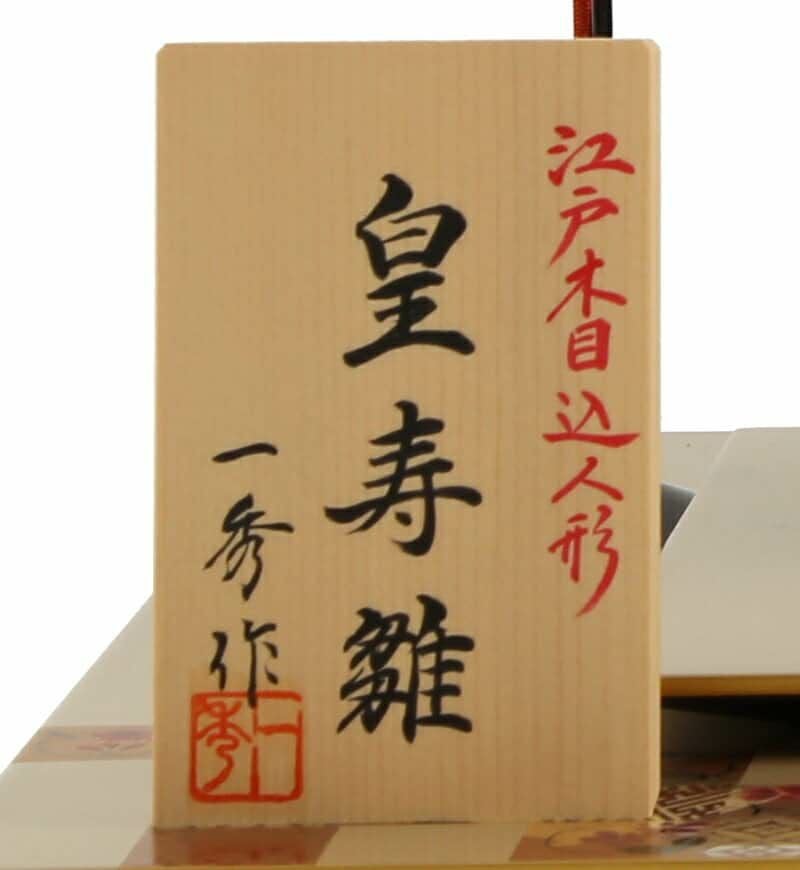 江戸木目込人形
皇寿雛
一秀作
一秀